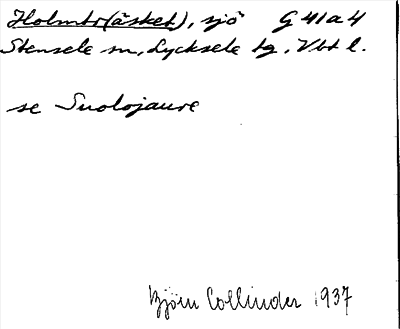 Holmtr(äsket), sjö G 41 a 4
Stensele sn, Lycksele tg, Vbt l.
se Suolojaure
Björn Collinder 1937